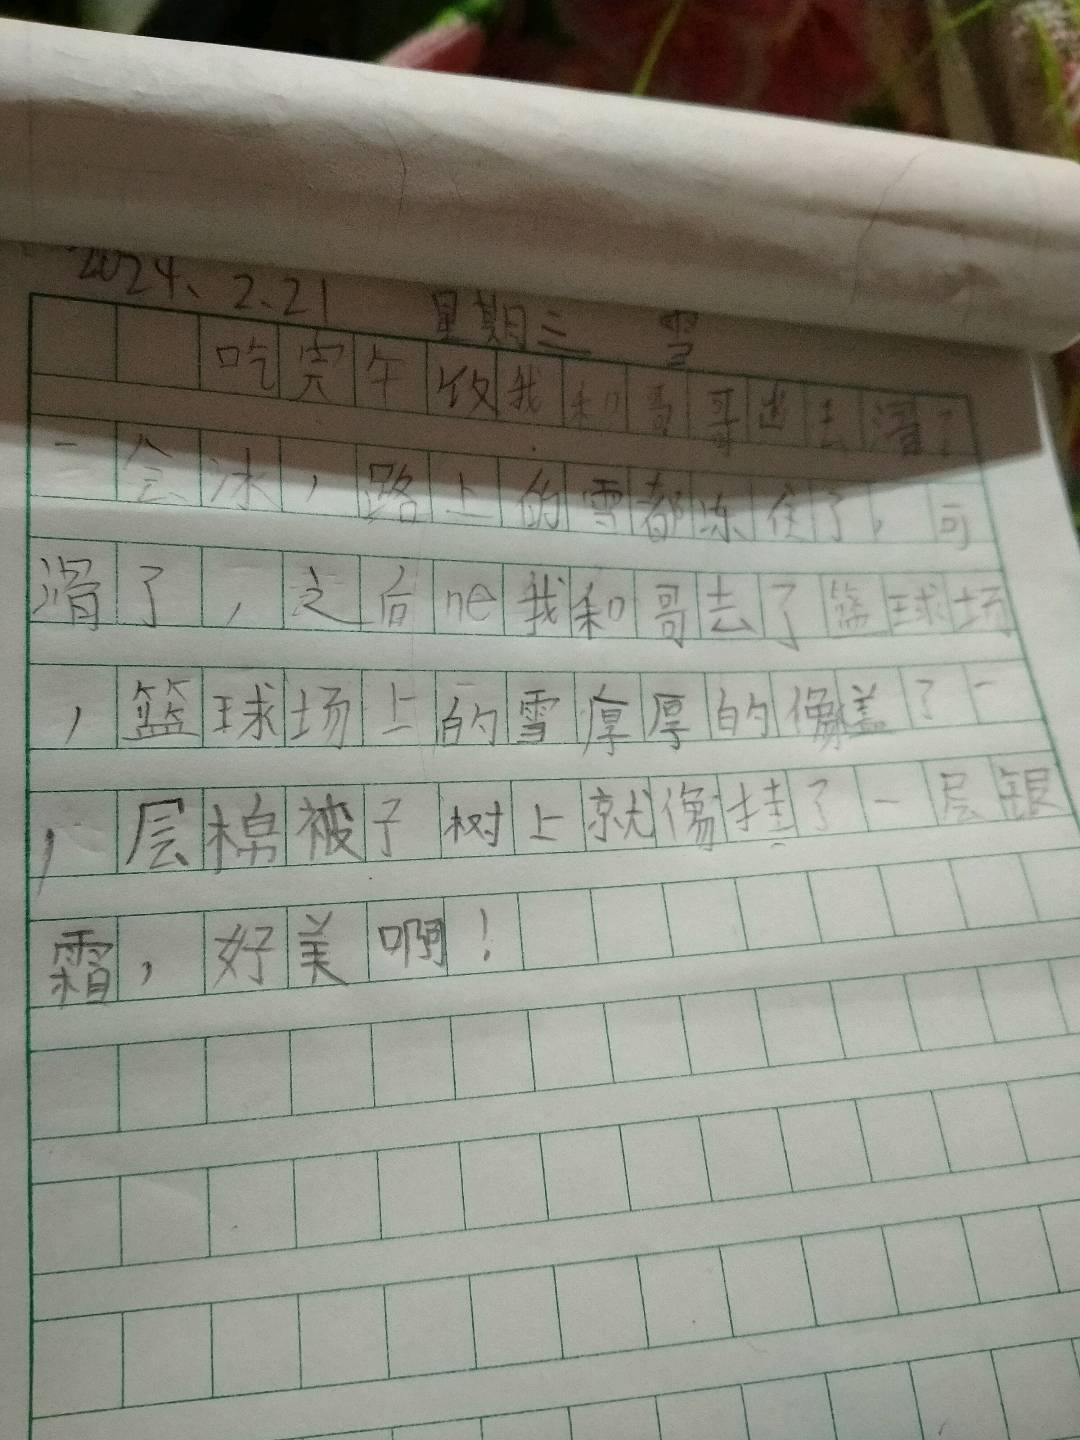 2024、2.21 星期三 雪
吃完午饭我和哥哥出去滑了
一会冰，路上的雪都冻住了，可
滑了，之后ne我和哥去了篮球场
，篮球场上的雪厚厚的像盖了一
，层棉被子树上就像挂了一层银
霜，好美啊！